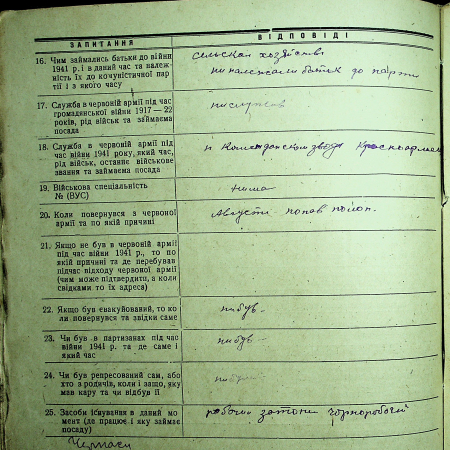 ЗАПИТАННЯ ВІДПОВІДІ
16. Чим займались батьки до війни
1941 р. і в даний час та належ-
ність їх до комуністичної пар
тії і з якого часу
сельская хозяйство
ниналежали батьк до парти
17. Служба в червоній армії під час
громадянської війни 1917—22
років, рід військ та займаєма
посада
нислужив
18. Служба в червоній армії під
час війни 1941 року, який час,
рід військ, останнє військове
звання та займаєма посада
19. Військова спеціальність
№ (ВУС)
нима
20. Коли повернувся з червоної
армії та по якій причині
Августі попав
21. Якщо не був в червоній армії
під час війни 1941 р., то по
якій причині та де перебував
підчас відходу червоної армії
(чим може підтвердити, а коли
свідками то їх адреса)
22. Якщо був евакуйований, то ко
ли повернувся та звідки саме
нибув
23. Чи був в партизанах під час
війни 1941 р. та де саме і
який час
нибув
24. Чи був репресований сам, або
хто з родичів, коли і защо, яку
мав кару та чи відбув її
нибув
25. Засоби існування в даний мо
мент (де працює і яку займає
посаду)
чорноробочий